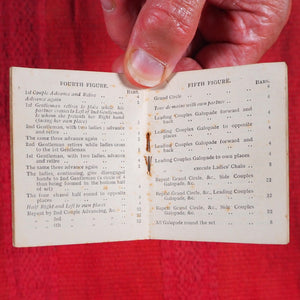 FOURTH FIGURE.
BARS.
1st Couple Advance and Retire
Advance again
1st Gentleman retires to place while his
partner crosses to Left of 2nd Gentleman,
to whom she presents her Right Hand
(facing him)
2nd Gentleman, with two ladies, advance
and retire
The same three advance again
2nd Gentleman retires while ladies cross
to the 1st Gentleman
1st Gentleman, with two ladies, advance
and retire
The same three advance again
The ladies, continuing, give disengaged
hands to 2nd Gentleman (a circle of 4
being thus formed in the bottom half
of set)
The four chassé half round to opposite
places
Half Right and Left to own places
Repeat by 2nd Couple Advancing, &c.
" 3rd "
" 4th "
FIFTH FIGURE.
BARS.
Grand Circle
Tour de mains with own partner
Leading Couples Galopade forward and
back
Leading Couples Galopade to opposite
places
Leading Couples Galopade forward and
back
Leading Couples Galopade to own places
execute Ladies' Chain
Repeat Grand Circle, &c., Side Couples
Galopade, &c.
Repeat Grand Circle, &c., Leading Couples
Galopade, &c.
Repeat Grand Circle, &c., Side Couples
Galopade, &c.
All Galopade round the set